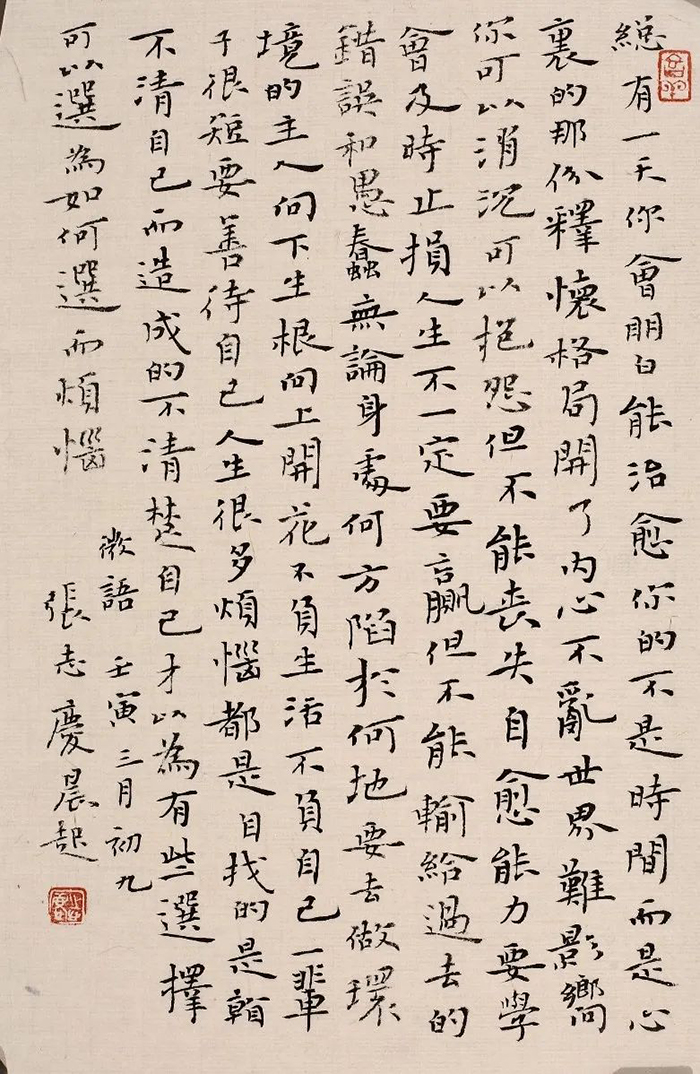 總有一天你會明白能治愈你的不是時間而是心
裏的那份釋懷格局開了内心不亂世界難影響
你可以消沉可以抱怨但不能丧失自愈能力要學
會及時止損人生不一定要贏但不能輸給過去的
錯誤和愚蠢無論身處何方陷於何地要去做環
境的主人向下生根向上開花不負生活不負自己一輩
子很短要善待自己人生很多煩惱都是自找的是看
不清自己而造成的不清楚自己才以為有些選擇
可以選為如何選而煩惱
微語 壬寅三月初九
張志慶晨起